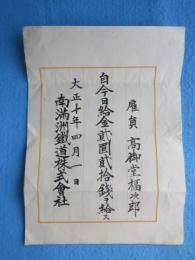 雇員 高御堂福次郎
自今日給金貳圓貳拾錢ヲ給ス
大正十年四月一日
南滿洲鐵道株式會社